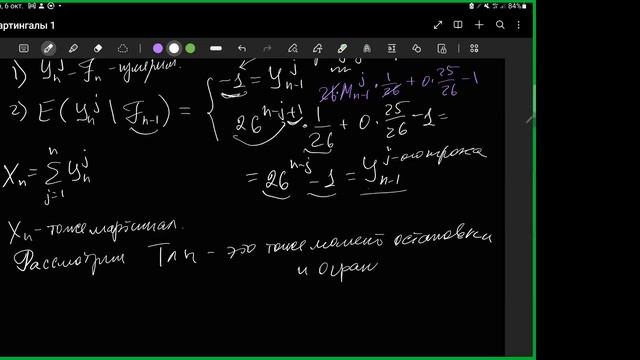 , 6 окт.
84%
артингалы 1
1) Y_n^j - F_n - измерим.
2) E(Y_n^j | F_{n-1}) = { -1 = Y_{n-1}^j
26·M_{n-1}^j · 1/26 + 0 · 25/26 - 1
26^{n-j+1} · 1/26 + 0 · 25/26 - 1 =
= 26^{n-j} - 1 = Y_{n-1}^j
X_n = ∑_{j=1}^n Y_n^j
X_n - тоже мартингал.
Рассмотрим T∧n - это тоже момент остановки
и огран